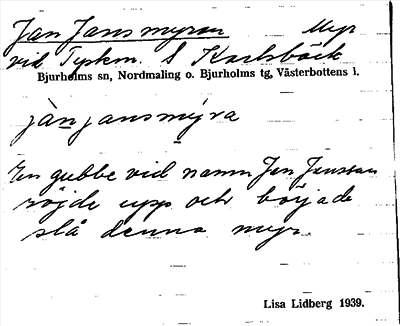 Jan Jansmyran Myr
vid Tyskm. S Karlsbäck
Bjurholms sn, Nordmaling o. Bjurholms tg, Västerbottens l.
jànjansmýra
En gubbe vid namn Jan Jansson
röjde upp och började
slå denna myr.
Lisa Lidberg 1939.